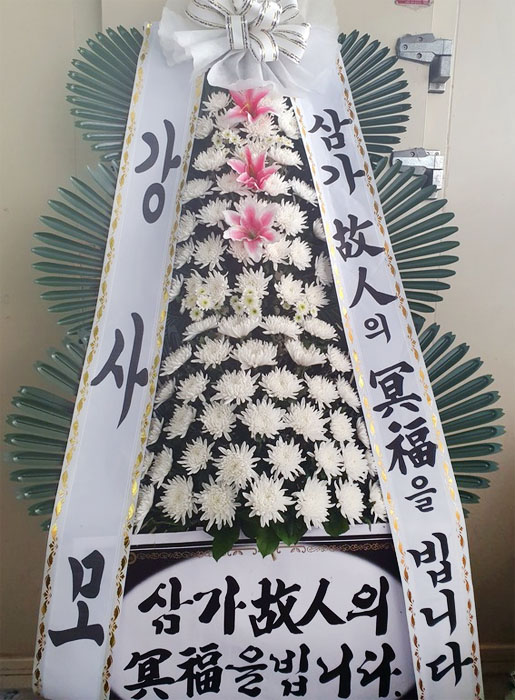 강사모
삼가 故人의 冥福을 빕니다
삼가 故人의
冥福을 빕니다